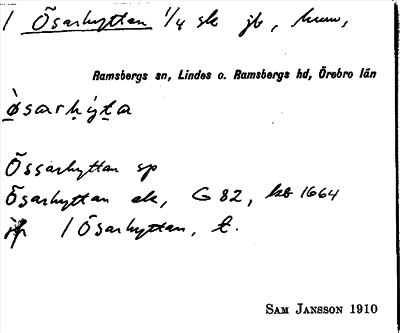 1 Ösarhyttan 1/4 sk jb, hmn,
Ramsbergs sn, Lindes o. Ramsbergs hd, Örebro län
ø̀sarḥýt̠a
Össarhyttan sp
Ösarhyttan ek, G 82, kb 1664
jfr 1 Ösarhyttan, t.
SAM JANSSON 1910